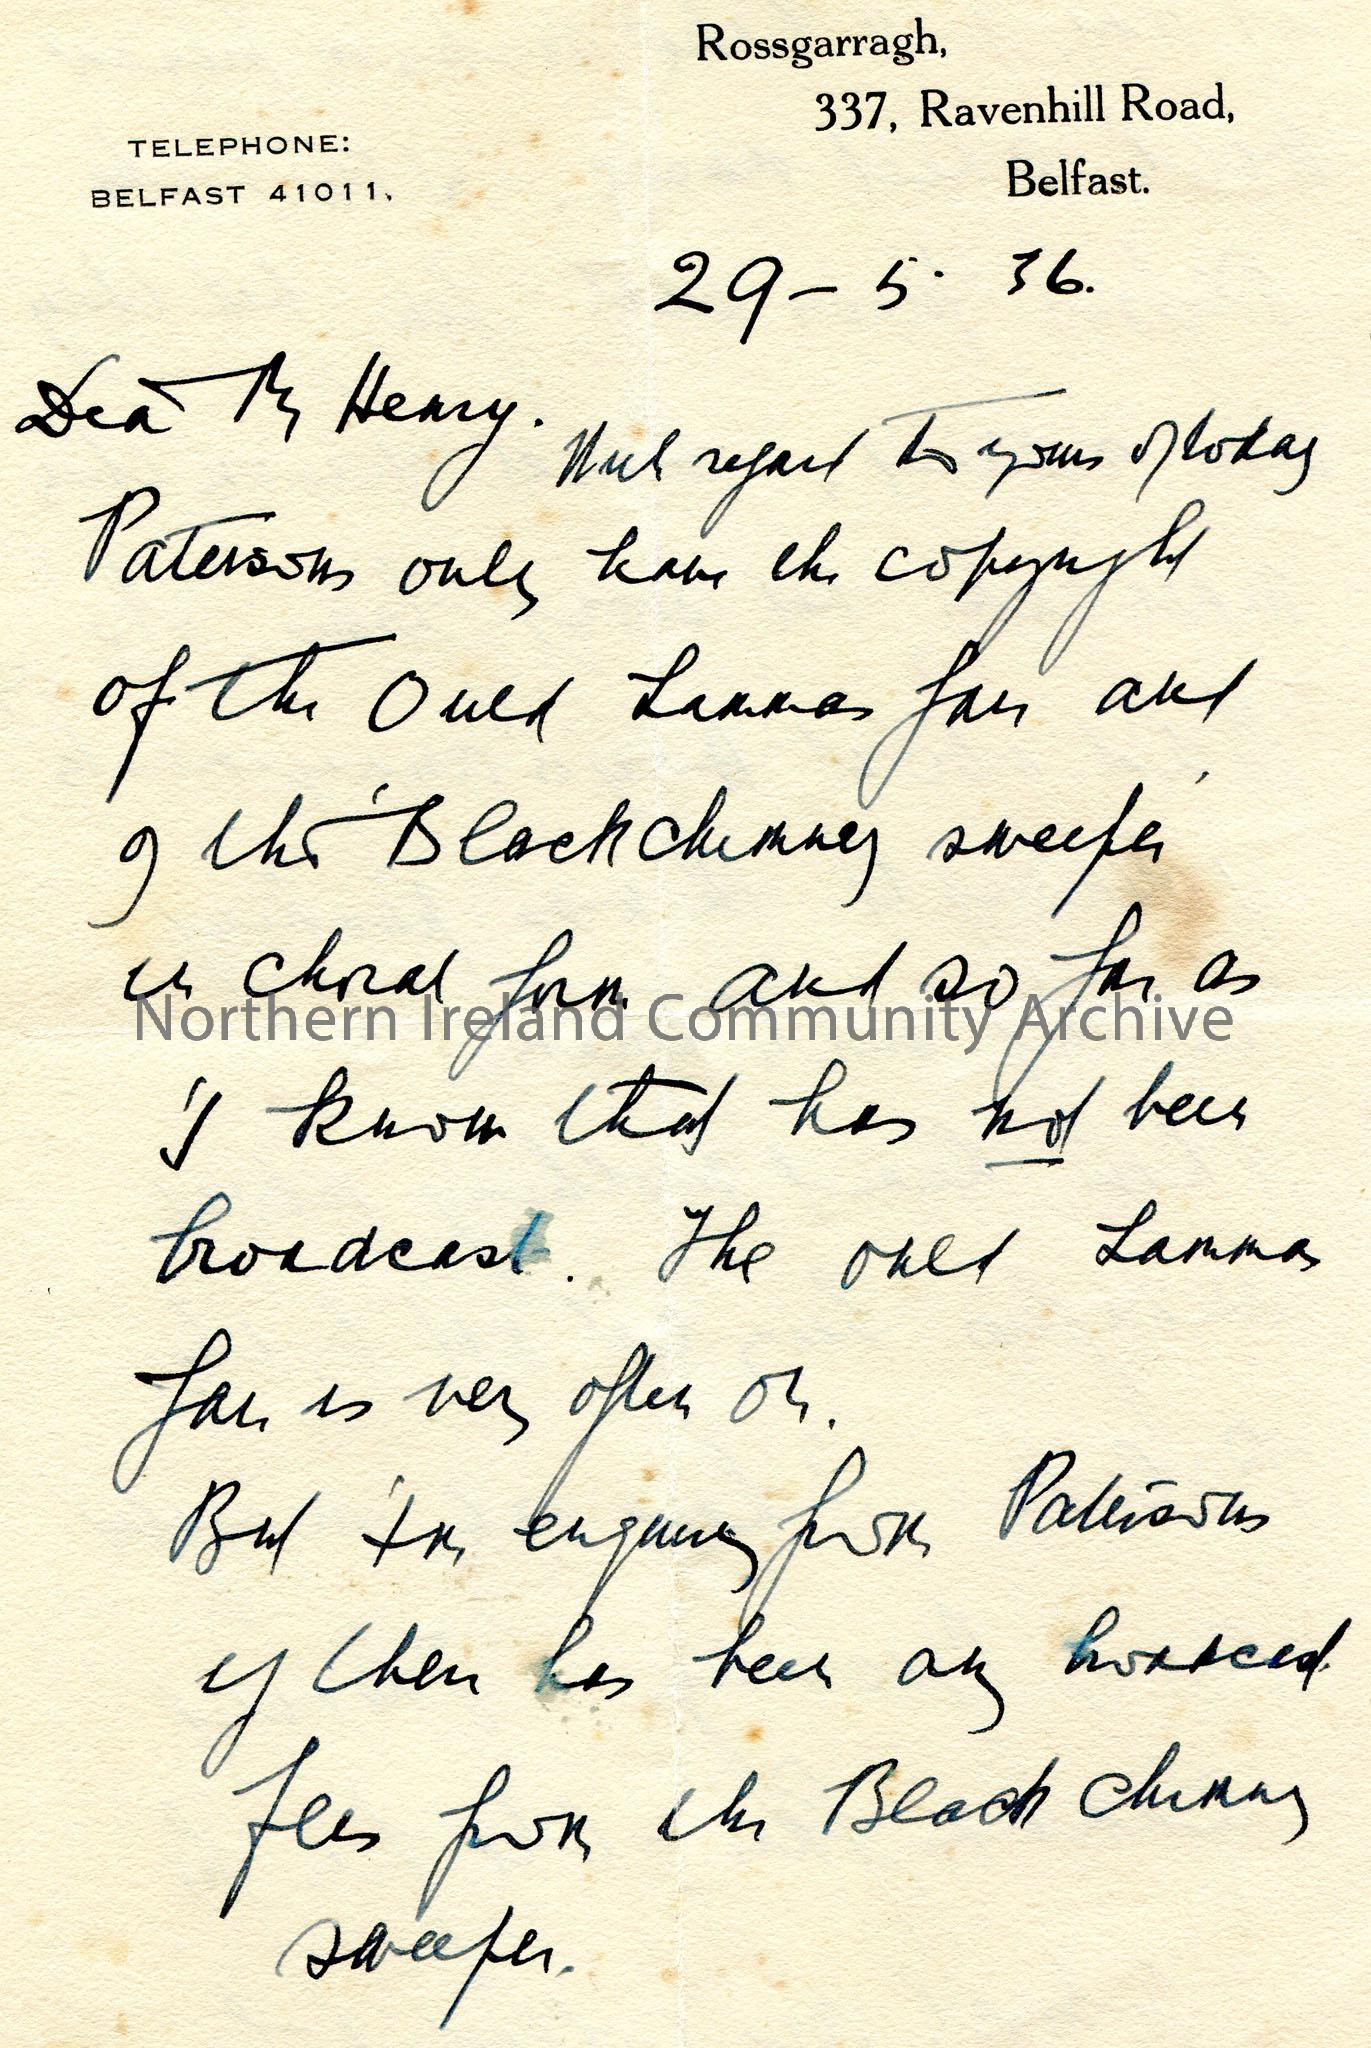 Rossgarragh,
337, Ravenhill Road,
Belfast.
TELEPHONE:
BELFAST 41011.
29 - 5 · 36.
Dear Mr Henry.
With regard to yours of today
Patersons only have the copyright
of the Ould Lammas fair and
of the 'Black chimney sweeper'
in choral form and so far as
I know that has not been
broadcast. The ould Lammas
fair is very often on.
But I'm enquiring from Patersons
if there has been any broadcast
fees from the Black chimney
sweeper.
Northern Ireland Community Archive